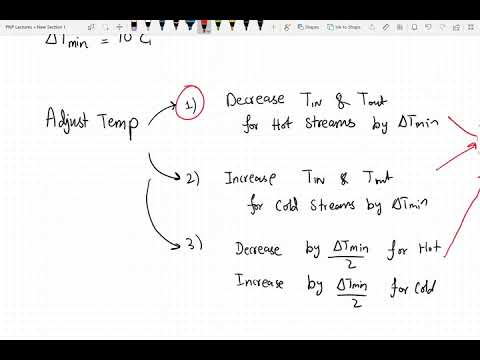 PNP Lectures » New Section 1
Shapes
Ink to Shape
ΔTmin = 10°C
Adjust Temp
1) Decrease TIN & Tout
for Hot Streams by ΔTmin
2) Increase TIN & Tout
for Cold Streams by ΔTmin
3) Decrease by ΔTmin/2 for Hot
Increase by ΔTmin/2 for Cold